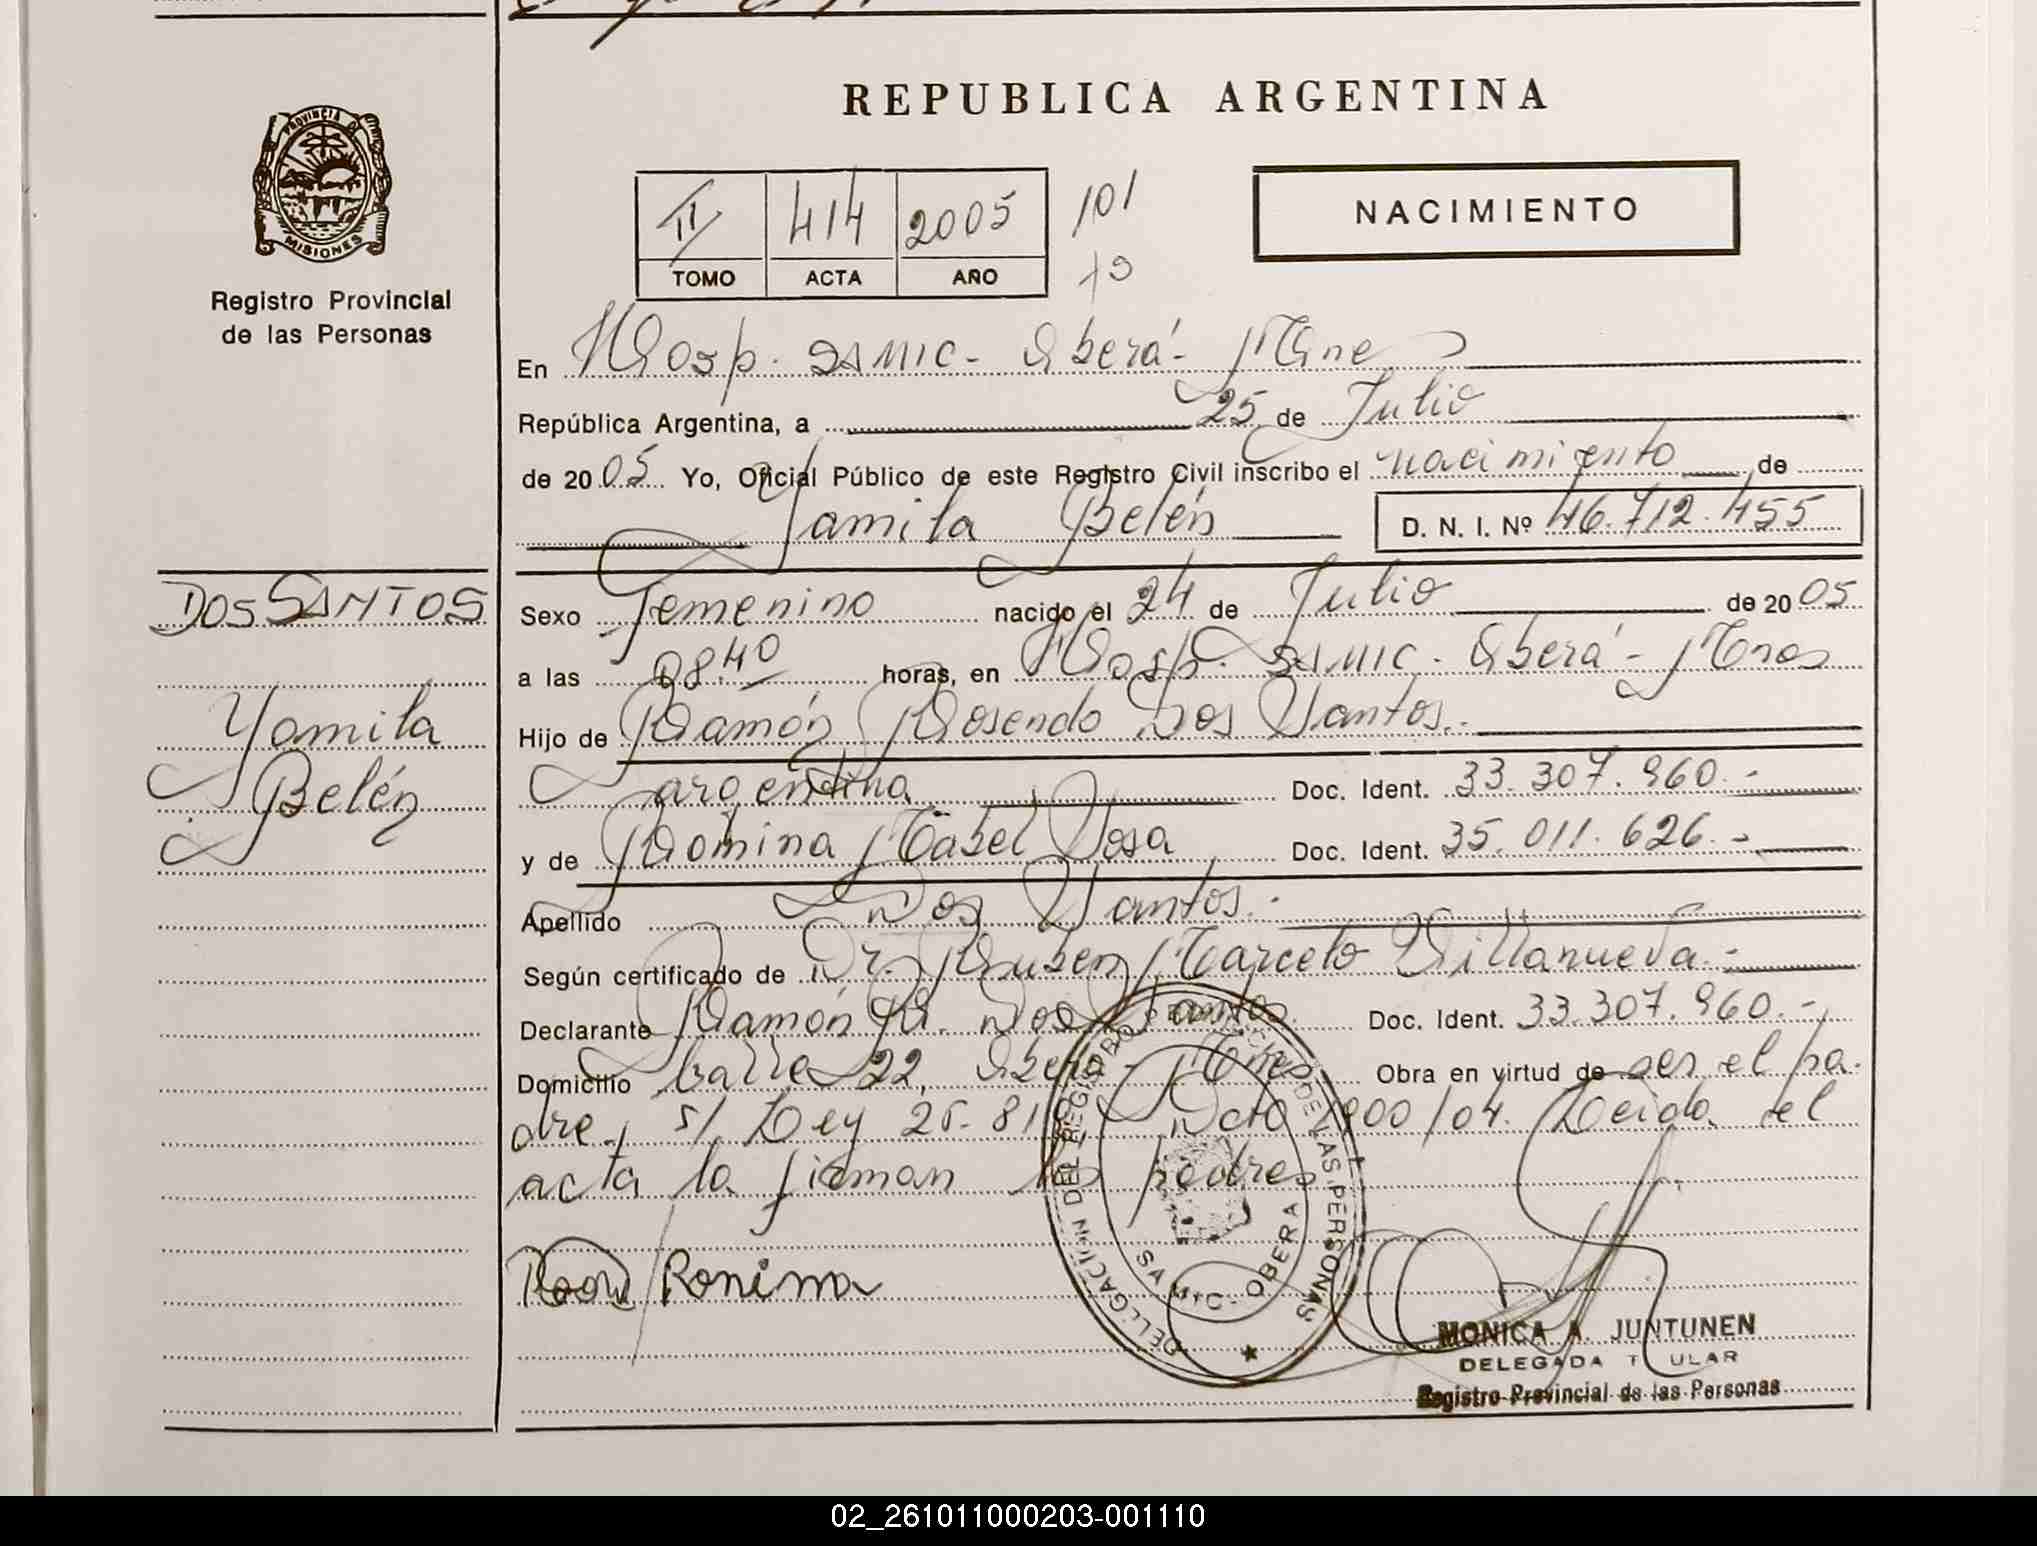 REPUBLICA ARGENTINA
PROVINCIA DE
MISIONES
Registro Provincial
de las Personas
II 414 2005 101
TOMO ACTA AÑO 10
NACIMIENTO
En Hosp. SAMIC - Oberá - Mnes
República Argentina, a 25 de Julio
de 2005 Yo, Oficial Público de este Registro Civil inscribo el nacimiento de
Yamila Belén D. N. I. Nº 46.712.455
DOS SANTOS
Yamila
Belén
Sexo Femenino nacido el 24 de Julio de 2005
a las 08.40 horas, en Hosp. SAMIC - Oberá - Mnes
Hijo de Ramón Rosendo Dos Santos.-
argentina Doc. Ident. 33.307.960.-
y de Romina Mabel Sosa Doc. Ident. 35.011.626.-
Apellido Dos Santos.-
Según certificado de Dr. Ruben Marcelo Villanueva.-
Declarante Ramón R. Dos Santos Doc. Ident. 33.307.960.-
Domicilio Calle 22, Oberá - Mnes. Obra en virtud de ser el pa-
dre, s/ Ley 25.819, Dcto 1900/04. Leida el
acta la firman los padres
Romina
DELEGACION DEL REGISTRO PROVINCIAL DE LAS PERSONAS
SAMIC - OBERA
MONICA A. JUNTUNEN
DELEGADA TITULAR
Registro Provincial de las Personas
02_261011000203-001110